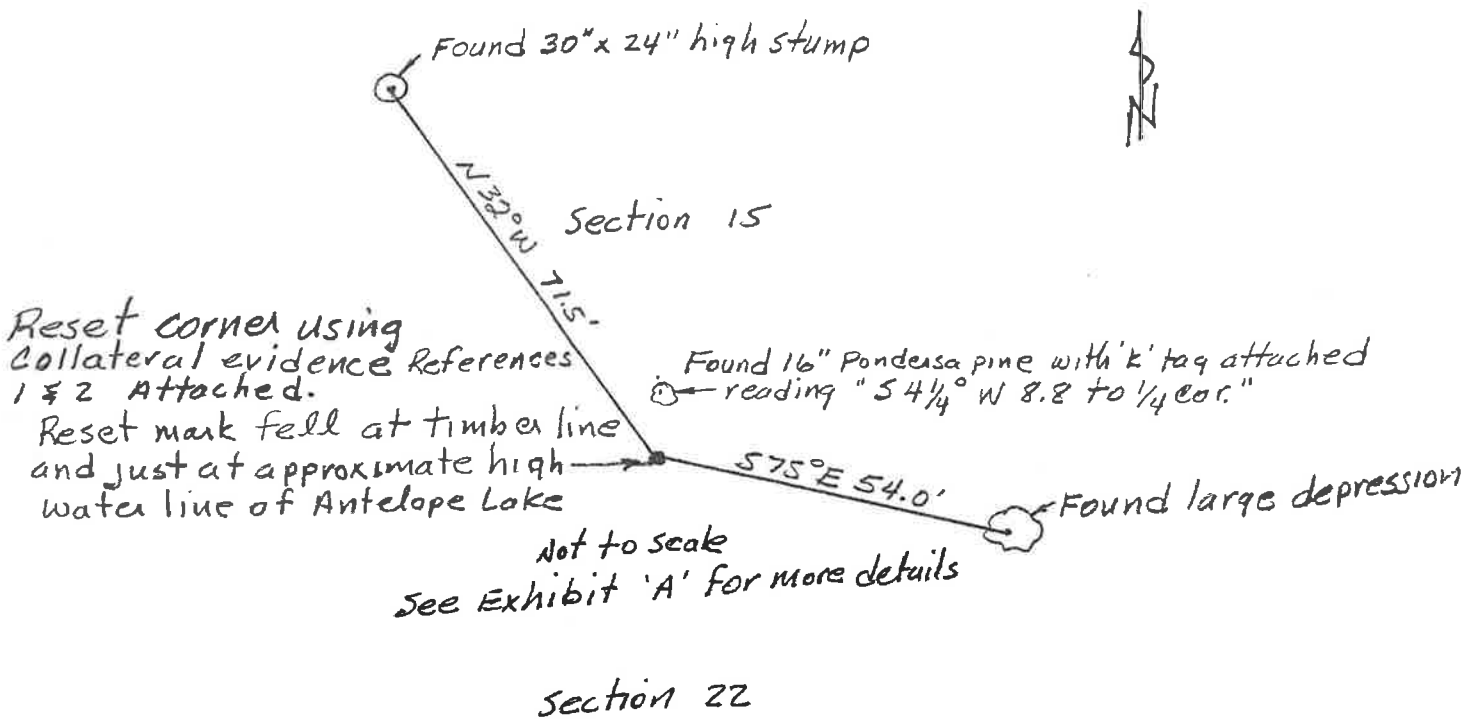 Found 30" x 24" high stump
N
N 32° W 71.5'
Section 15
Reset corner using
Collateral evidence References
1 & 2 Attached.
Reset mark fell at timber line
and just at approximate high
water line of Antelope Lake
Found 16" Pondersa pine with 'K' tag attached
reading "S 4 1/4° W 8.8 to 1/4 cor."
S 75° E 54.0'
Found large depression
Not to scale
See Exhibit 'A' for more details
Section 22